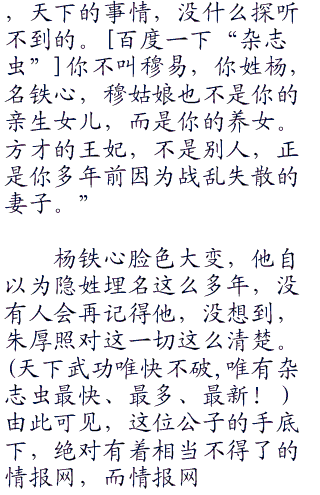 ，天下的事情，没什么探听
不到的。[百度一下“杂志
虫”]你不叫穆易，你姓杨，
名铁心，穆姑娘也不是你的
亲生女儿，而是你的养女。
方才的王妃，不是别人，正
是你多年前因为战乱失散的
妻子。”
杨铁心脸色大变，他自
以为隐姓埋名这么多年，没
有人会再记得他，没想到，
朱厚照对这一切这么清楚。
(天下武功唯快不破,唯有杂
志虫最快、最多、最新！)
由此可见，这位公子的手底
下，绝对有着相当不得了的
情报网，而情报网